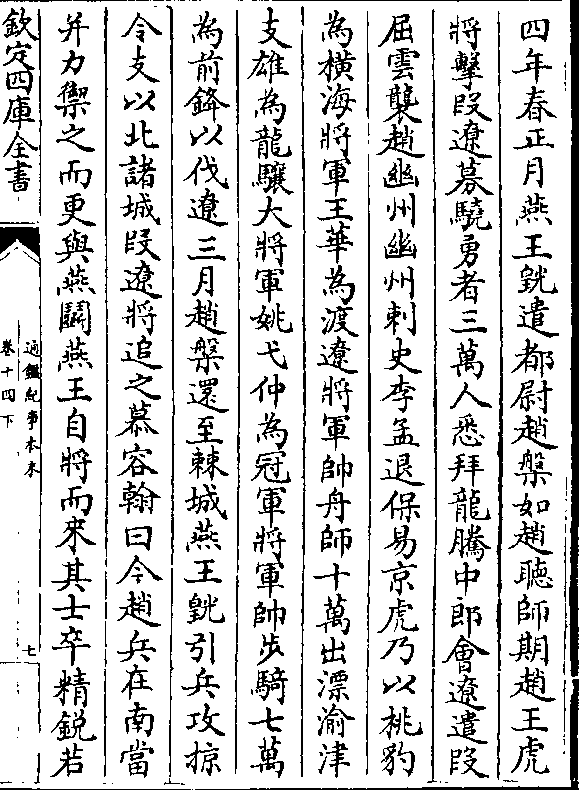 四年春正月燕王皝遣都尉趙槃如趙聽師期趙王虎
將擊段遼募驍勇者三萬人悉拜龍騰中郎會遼遣段
屈雲襲趙幽州幽州刺史李孟退保易京虎乃以桃豹
為橫海將軍王華為渡遼將軍帥舟師十萬出漂渝津
支雄為龍驤大將軍姚弋仲為冠軍將軍帥步騎七萬
為前鋒以伐遼三月趙槃還至棘城燕王皝引兵攻掠
令支以北諸城段遼將追之慕容翰曰今趙兵在南當
并力禦之而更與燕鬬燕王自將而來其士卒精銳若
欽定四庫全書
通鑑紀事本末
卷十四下
七